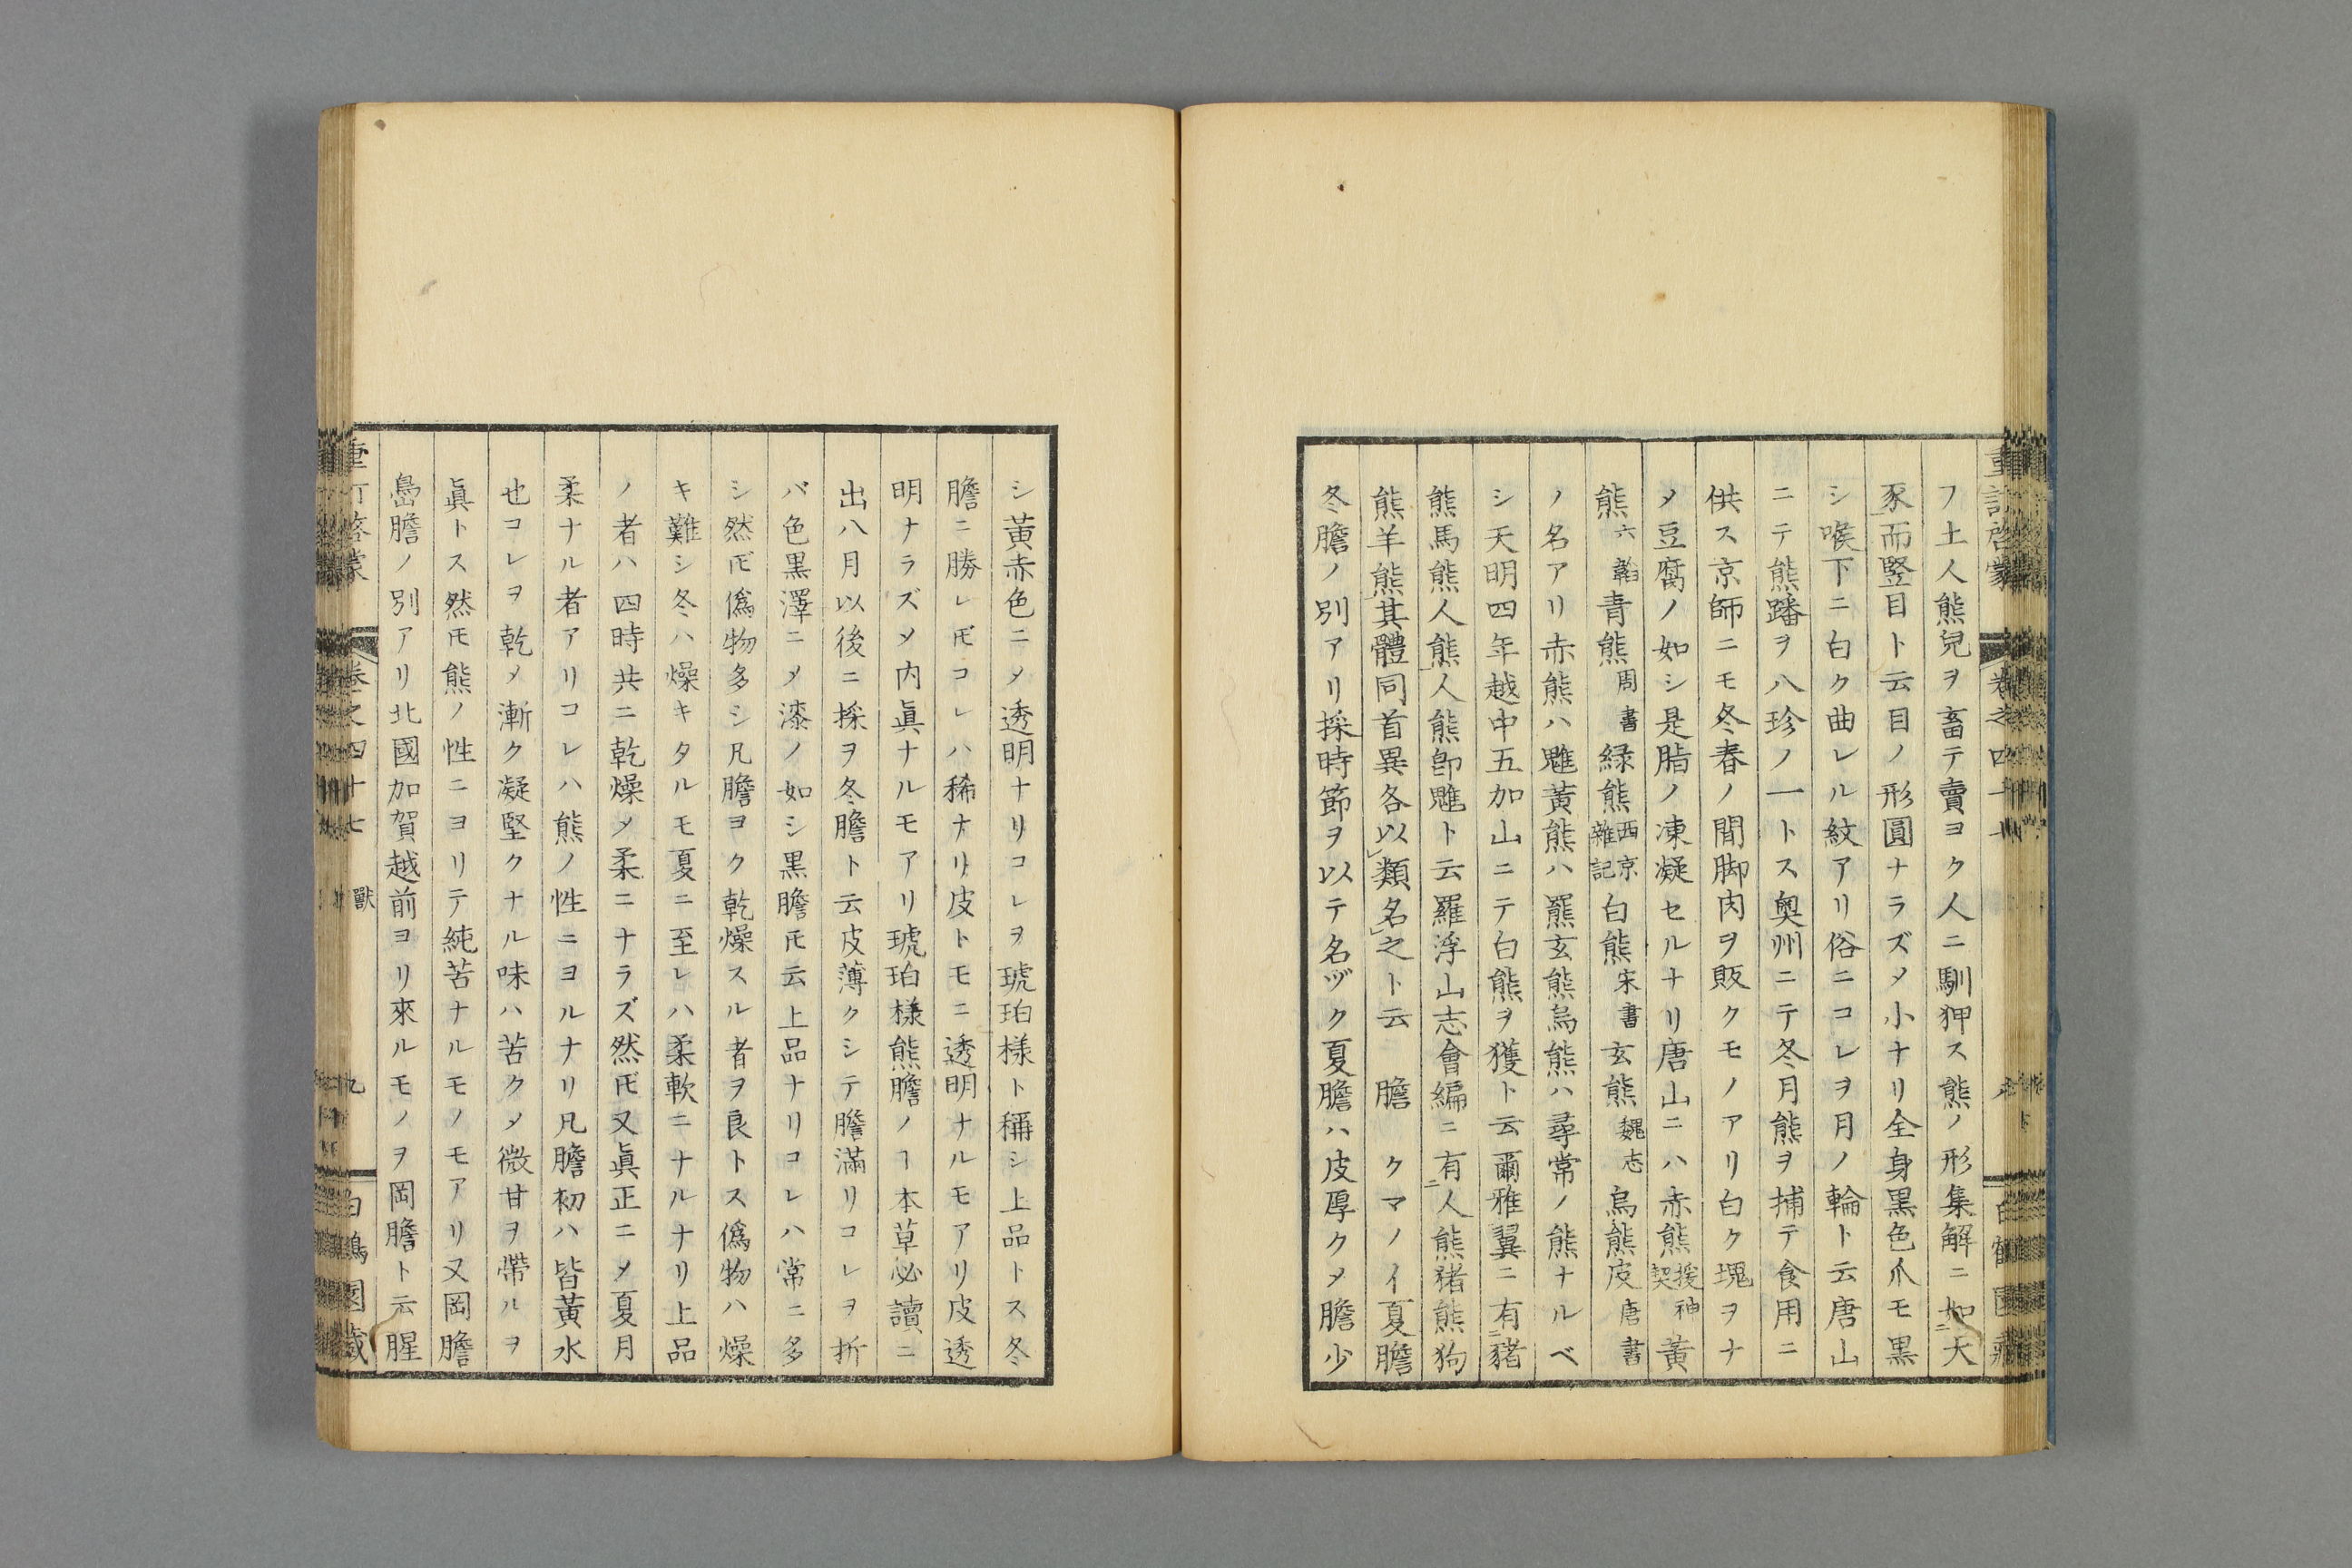 フ土人熊兒ヲ畜テ賣ヨク人ニ馴狎ス熊ノ形集解ニ如大
豕而竪目ト云目ノ形圓ナラズメ小ナリ全身黒色爪モ黒
シ喉下ニ白ク曲レル紋アリ俗ニコレヲ月ノ輪ト云唐山
ニテ熊蹯ヲ八珍ノ一トス奥州ニテ冬月熊ヲ捕テ食用ニ
供ス京師ニモ冬春ノ間脚肉ヲ販クモノアリ白ク塊ヲナ
メ豆腐ノ如シ是脂ノ凍凝セルナリ唐山ニハ赤熊援神契黄
熊六韜青熊周書緑熊西京雜記白熊宋書玄熊魏志烏熊皮唐書
ノ名アリ赤熊ハ魋黄熊ハ羆玄熊烏熊ハ尋常ノ熊ナルベ
シ天明四年越中五加山ニテ白熊ヲ獲ト云爾雅翼ニ有猪
熊馬熊人熊人熊卽魋ト云羅浮山志會編ニ有人熊猪熊狗
熊羊熊其體同首異各以類名之ト云 膽 クマノイ夏膽
冬膽ノ別アリ採時節ヲ以テ名ヅク夏膽ハ皮厚クメ膽少
シ黄赤色ニメ透明ナリコレヲ琥珀様ト稱シ上品トス冬
膽ニ勝レ𪜈コレハ稀ナリ皮トモニ透明ナルモアリ皮透
明ナラズメ内眞ナルモアリ琥珀様熊膽ノヿ本草必讀ニ
出八月以後ニ採ヲ冬膽ト云皮薄クシテ膽滿リコレヲ折
バ色黒澤ニメ漆ノ如シ黒膽𪜈云上品ナリコレハ常ニ多
シ然𪜈僞物多シ凡膽ヨク乾燥スル者ヲ良トス僞物ハ燥
キ難シ冬ハ燥キタルモ夏ニ至レハ柔軟ニナルナリ上品
ノ者ハ四時共ニ乾燥メ柔ニナラズ然𪜈又眞正ニメ夏月
柔ナル者アリコレハ熊ノ性ニヨルナリ凡膽初ハ皆黄水
也コレヲ乾メ漸ク凝堅クナル味ハ苦クメ微甘ヲ帶ルヲ
眞トス然𪜈熊ノ性ニヨリテ純苦ナルモノモアリ又岡膽
嶌膽ノ別アリ北國加賀越前ヨリ來ルモノヲ岡膽ト云腥
卷之四十七 獸 九